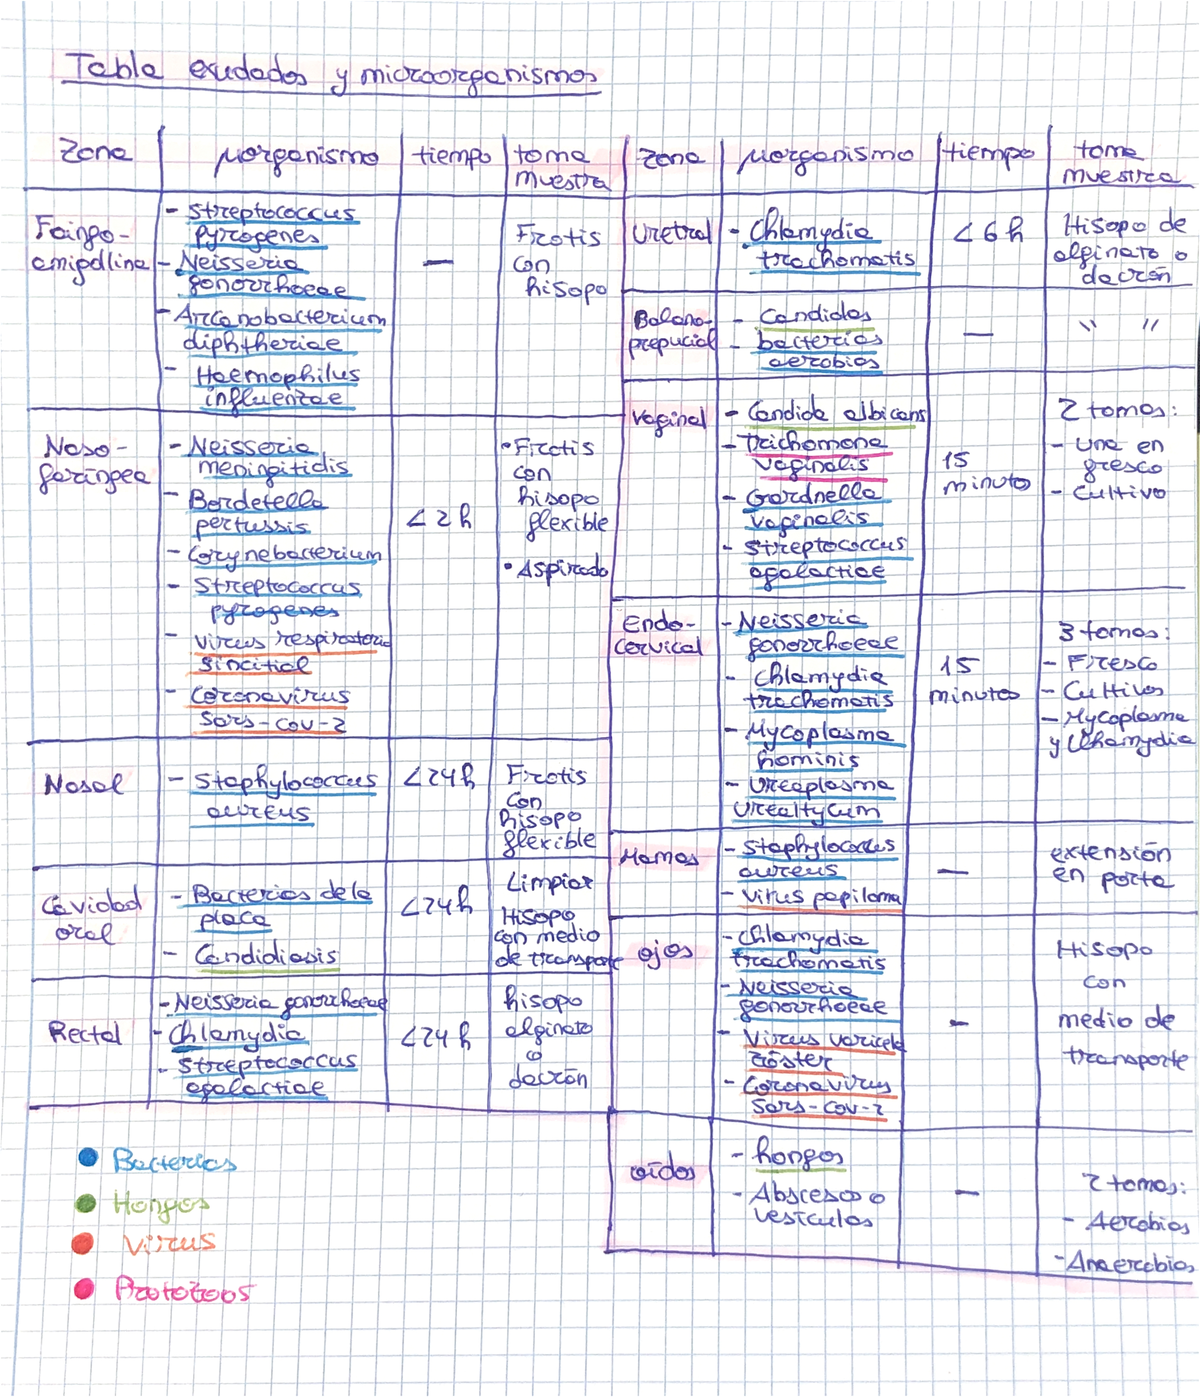 Tabla exudados y microorganismos
Zona
µorganismo
tiempo
toma
muestra
Faingo-
amigdlina
- Streptococcus
pyrogenes
- Neisseria
gonorrhoeae
- Arcanobacterium
diphtheriae
- Haemophilus
influenzae
—
Frotis
con
hisopo
Naso-
faríngea
- Neisseria
meningitidis
- Bordetella
pertussis
- Corynebacterium
- Streptococcus
pyrogenes
- Virus respiratorio
sincitial
- Coronavirus
Sars-Cov-2
< 2 h
• Frotis
con
hisopo
flexible
• Aspirado
Nasal
- Staphylococcus
aureus
< 24 h
Frotis
con
hisopo
flexible
Cavidad
oral
- Bacterias de la
placa
- Candidiasis
< 24 h
Limpiar
Hisopo
con medio
de transporte
Rectal
- Neisseria gonorrhoeae
- Chlamydia
- Streptococcus
agalactiae
< 24 h
hisopo
alginato
o
dacrón
Zona
µorganismo
tiempo
toma
muestra
Uretral
- Chlamydia
trachomatis
< 6 h
Hisopo de
alginato o
dacrón
Balano-
prepucial
- Candidas
- bacterias
aerobias
—
" "
Vaginal
- Candida albicans
- Trichomona
vaginalis
- Gardnella
vaginalis
- Streptococcus
agalactiae
15
minuto
2 tomas:
- Una en
fresco
- Cultivo
Endo-
cervical
- Neisseria
gonorrhoeae
- Chlamydia
trachomatis
- Mycoplasma
hominis
- Ureaplasma
urealtycum
15
minutos
3 tomas:
- Fresco
- Cultivos
- Mycoplasma
y Chamydia
Mamas
- Staphylococcus
aureus
- Virus papiloma
—
extensión
en porta
ojos
- Chlamydia
trachomatis
- Neisseria
gonorrhoeae
- Virus varicela
zóster
- Coronavirus
Sars-Cov-2
—
Hisopo
con
medio de
transporte
oídos
- hongos
- Abscesos o
vesículas
—
2 tomas:
- Aerobios
- Anaerobios
Bacterias
Hongos
Virus
Protozoos